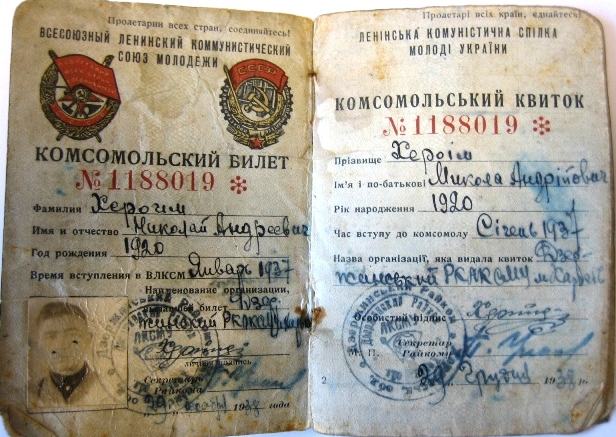 Пролетарии всех стран, соединяйтесь!
ВСЕСОЮЗНЫЙ ЛЕНИНСКИЙ КОММУНИСТИЧЕСКИЙ
СОЮЗ МОЛОДЕЖИ
СССР
КОМСОМОЛЬСКИЙ БИЛЕТ
№ 1188019 *
Фамилия Херогим
Имя и отчество Николай Андреевич
Год рождения 1920
Время вступления в ВЛКСМ Январь 1937
Наименование организации,
билет
личная подпись
Секретарь
Райкома
193 года
Пролетарі всіх країн, єднайтесь!
ЛЕНІНСЬКА КОМУНІСТИЧНА СПІЛКА
МОЛОДІ УКРАЇНИ
КОМСОМОЛЬСЬКИЙ КВИТОК
№ 1188019 *
Прізвище Херогім
Ім'я і по-батькові Микола Андрійович
Рік народження 1920
Час вступу до комсомолу Січень 1937
Назва організації, яка видала квиток Дзер-
жинський РКЛКСМУ м. Харків
Особистий підпис
Секретар
М. П. Райкому
2 " Грудня 193 р.